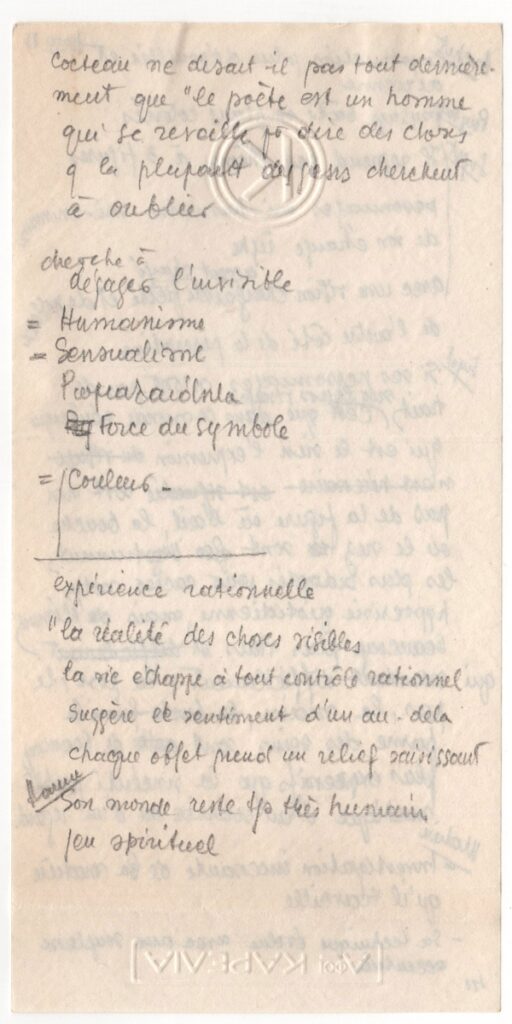 Cocteau ne disait-il pas tout dernière-
ment que "le poète est un homme
qui se réveille pr dire des choses
q la plupart des gens cherchent
à oublier
cherche à
dégager l'invisible
= Humanisme
= Sensualisme
Force du symbole
= Couleur
expérience rationnelle
"la réalité des choses visibles
la vie échappe à tout contrôle rationnel
suggère le sentiment d'un au-delà
chaque objet prend un relief saisissant
son monde reste tjs très humain
jeu spirituel
ΑΦΟΙ ΚΑΡΕΛΙΑ